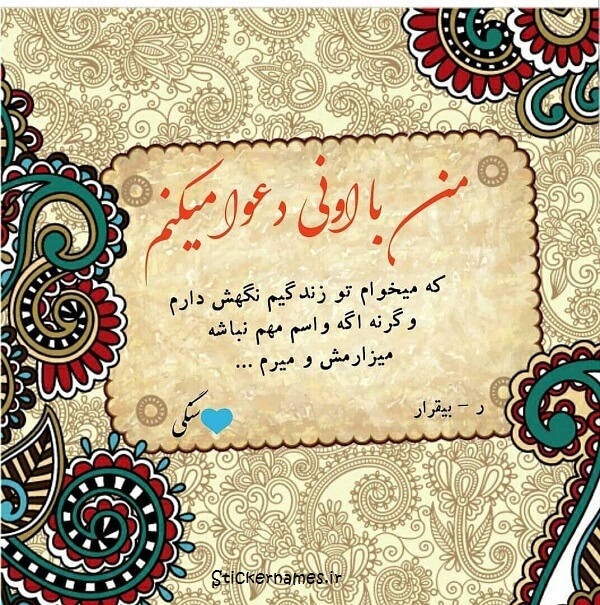 من با اونی دعوا میکنم
که میخوام تو زندگیم نگهش دارم
وگرنه اگه واسم مهم نباشه
میزارمش و میرم ...
ر - بیقرار
سنگی
Stickernames.ir